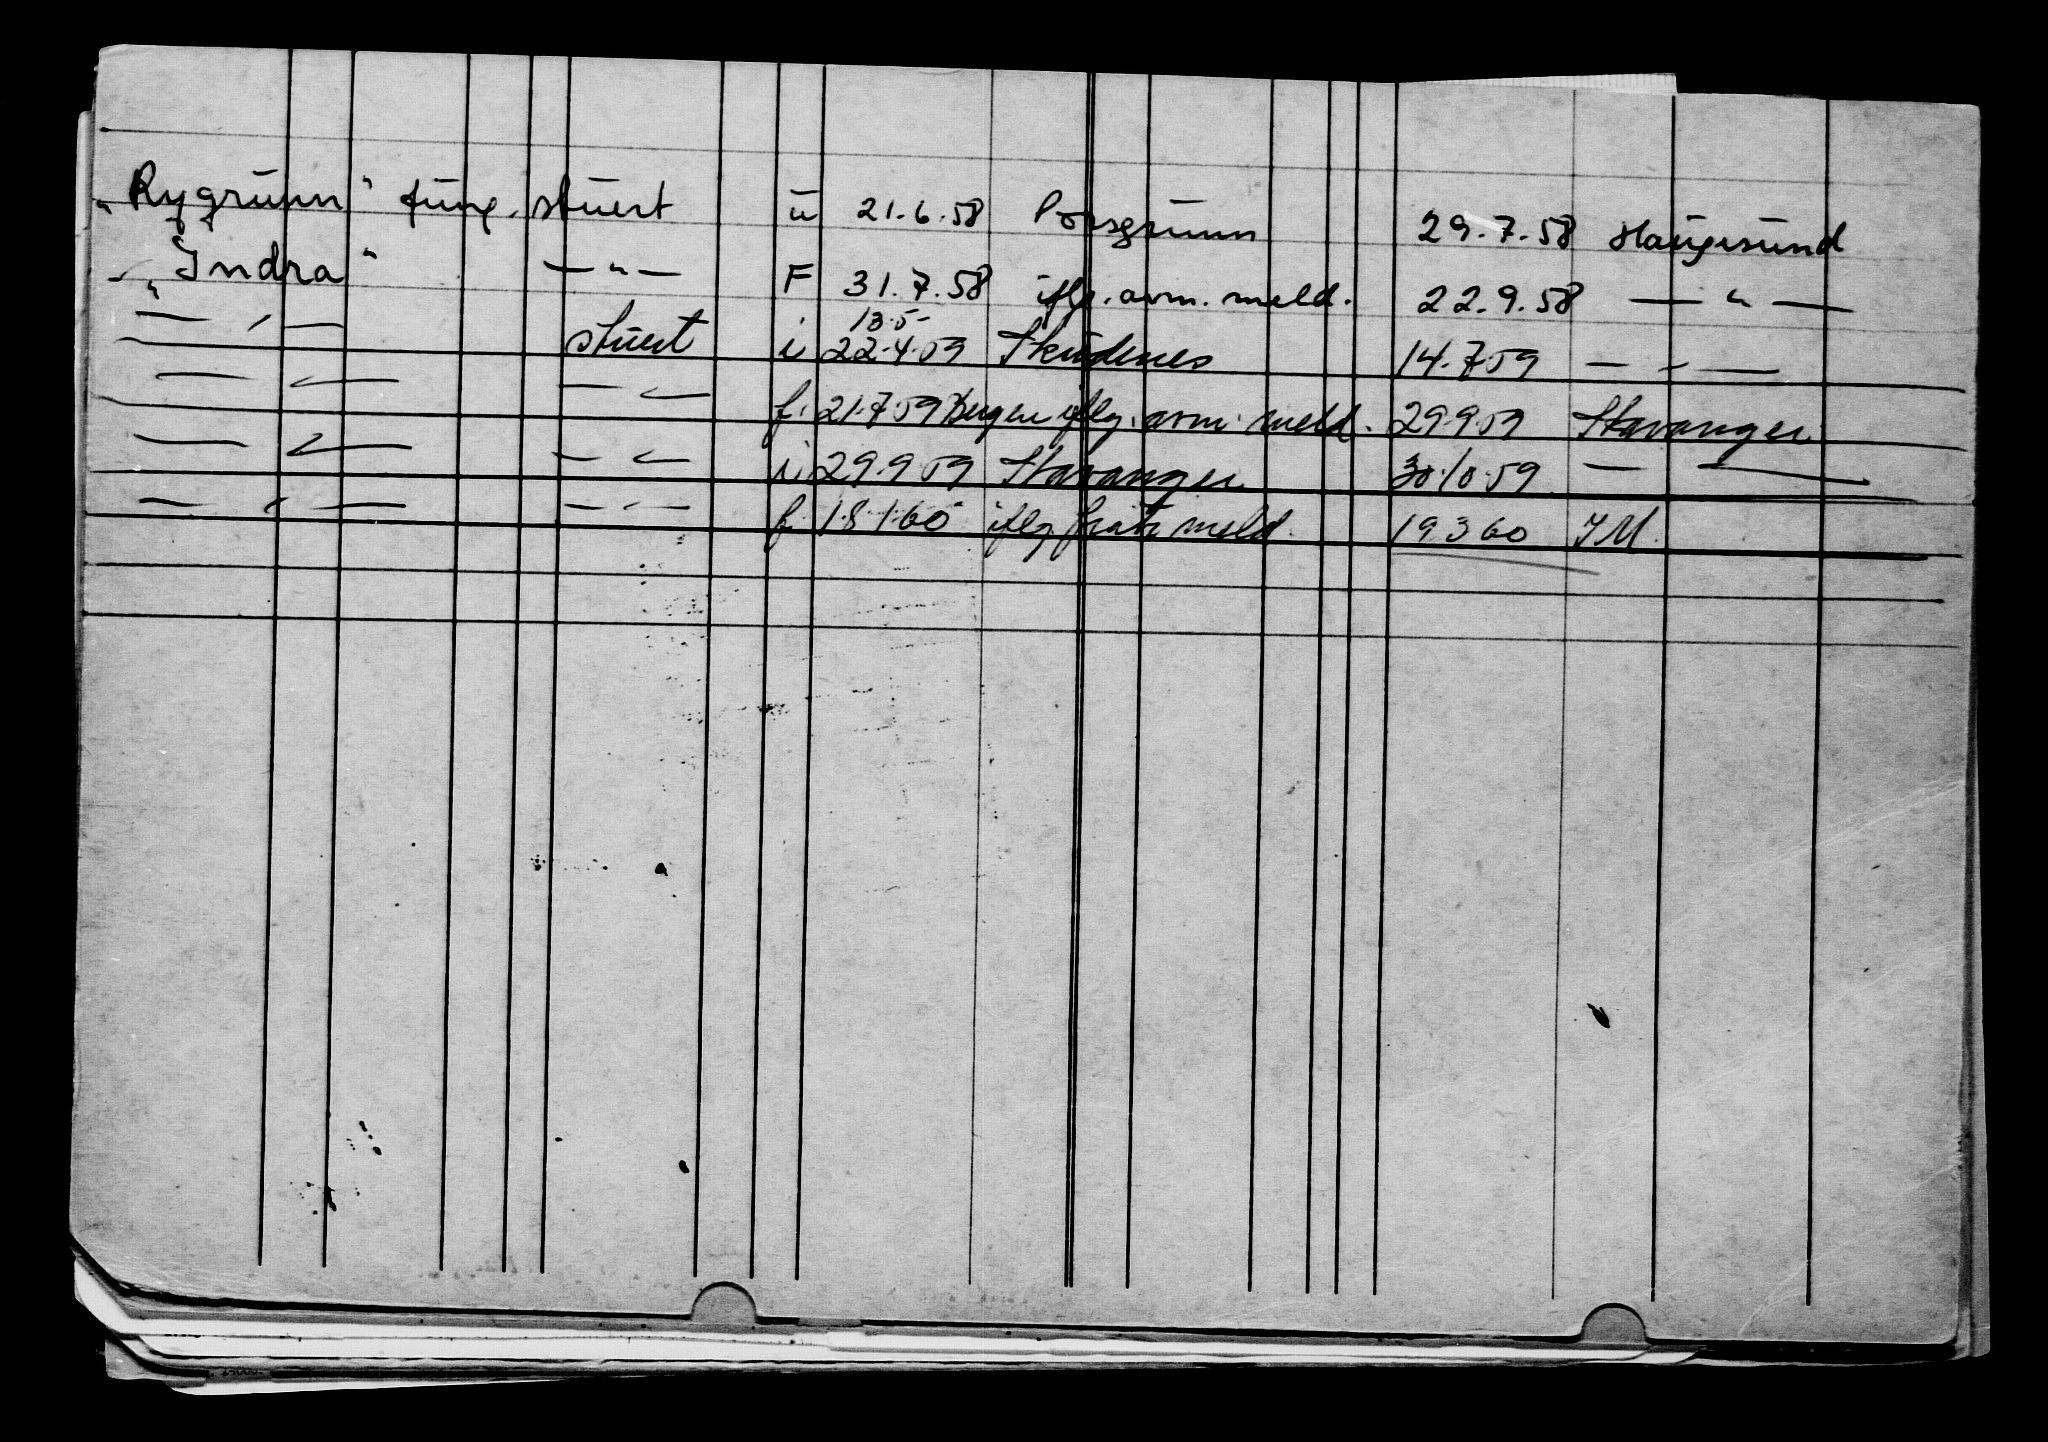 „Rygrunn“ fung. stuert u 21.6.58 Porsgrunn 29.7.58 Haugesund
„Indra“ —"— F 31.7.58 iflg. avm. meld. 22.9.58 —"—
13.5-
—"— stuert i 22.4.59 Skudenes 14.7.59 —"—
—"— —"— f. 21.7.59 iflg. avm. meld. 29.9.59 Stavanger
—"— —"— i 29.9.59 Stavanger 30.10.59 —"—
—"— —"— f. 18.1.60 iflg. meld. 19 3 60